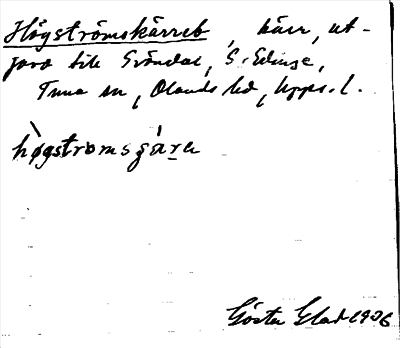 Högströmskärret, kärr, ut-
jord till Gröndal, S. Edinge,
Tuna sn, Olands hd, Upps. l.
högstromsçä̀ra
Gösta Glad 1906